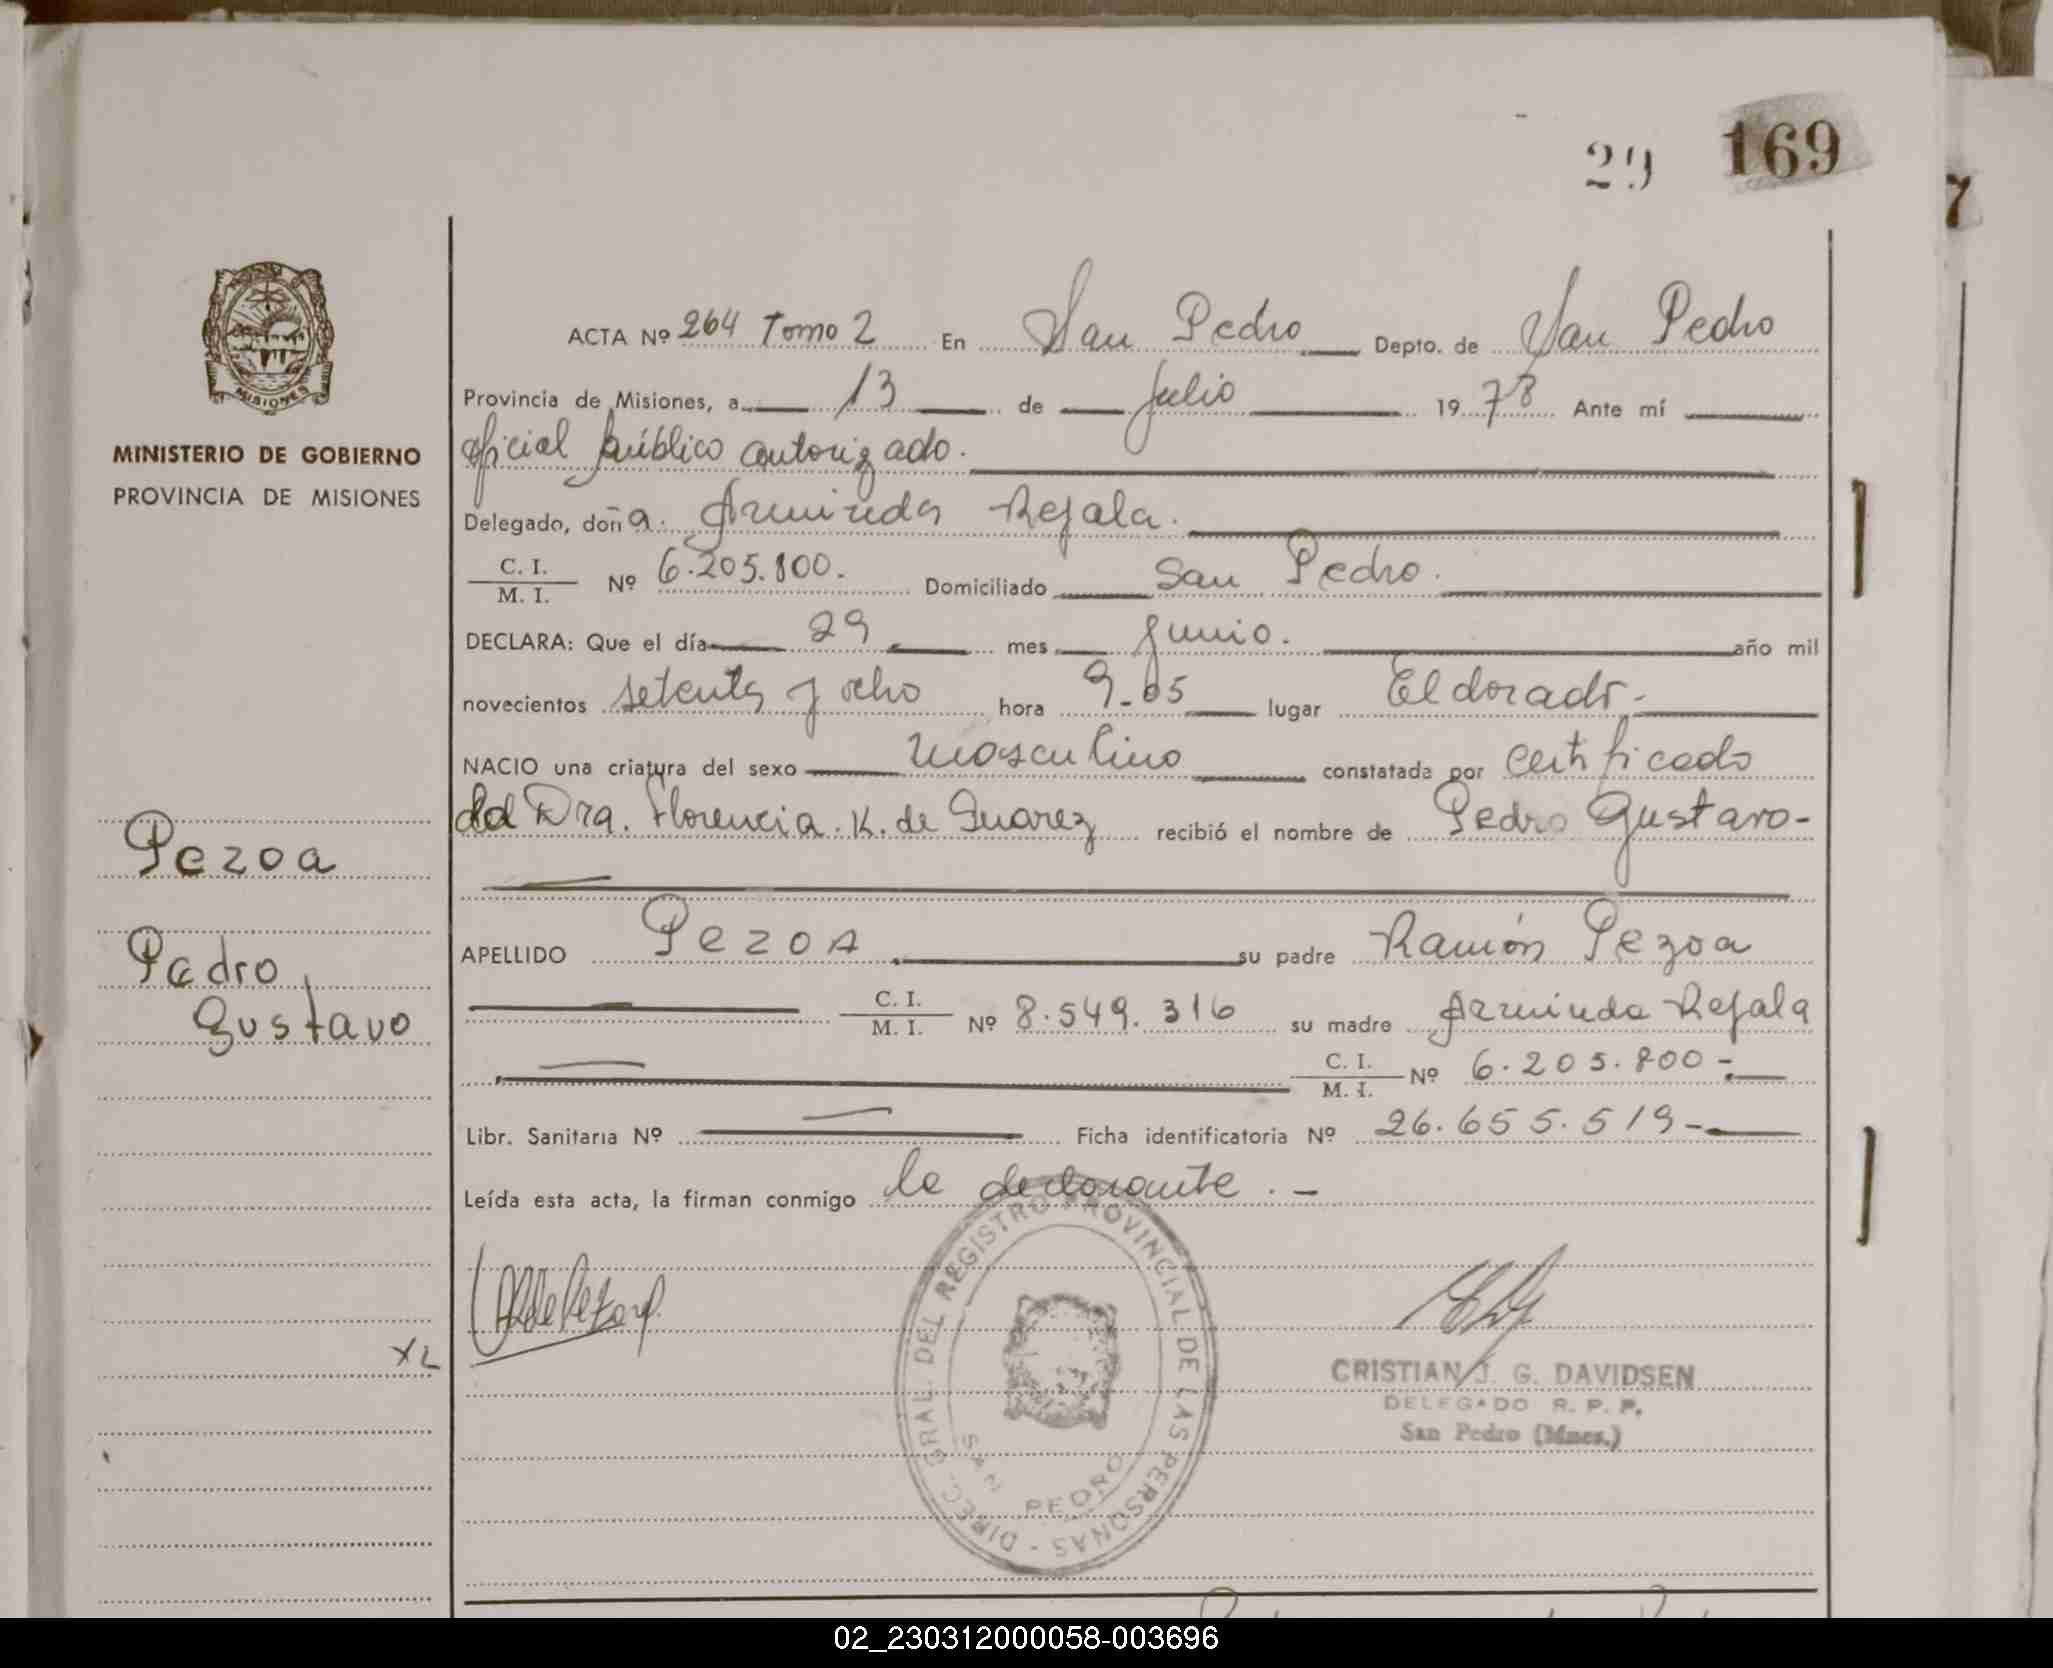 29 169
7
MISIONES
MINISTERIO DE GOBIERNO
PROVINCIA DE MISIONES
Pezoa
Pedro
Gustavo
XL
ACTA Nº 264 Tomo 2 En San Pedro Depto. de San Pedro
Provincia de Misiones, a 13 de Julio 1978 Ante mí
oficial público autorizado.
Delegado, doña. Arminda Rejala.
C. I.
M. I. Nº 6.205.800. Domiciliado San Pedro.
DECLARA: Que el día 29 mes junio. año mil
novecientos setenta y ocho hora 9-05 lugar Eldorado-
NACIO una criatura del sexo masculino constatada por certificado
del Dra. Florencia. K. de Suarez recibió el nombre de Pedro Gustavo-
APELLIDO Pezoa su padre Ramón Pezoa
C. I.
M. I. Nº 8.549.316 su madre Arminda Rejala
C. I.
M. I. Nº 6.205.800-
Libr. Sanitaria Nº Ficha identificatoria Nº 26.655.519-
Leída esta acta, la firman conmigo la declarante.-
DIREC. GRAL. DEL REGISTRO PROVINCIAL DE LAS PERSONAS -
SAN PEDRO
CRISTIAN J. G. DAVIDSEN
DELEGADO R. P. P.
San Pedro (Mnes.)
02_230312000058-003696